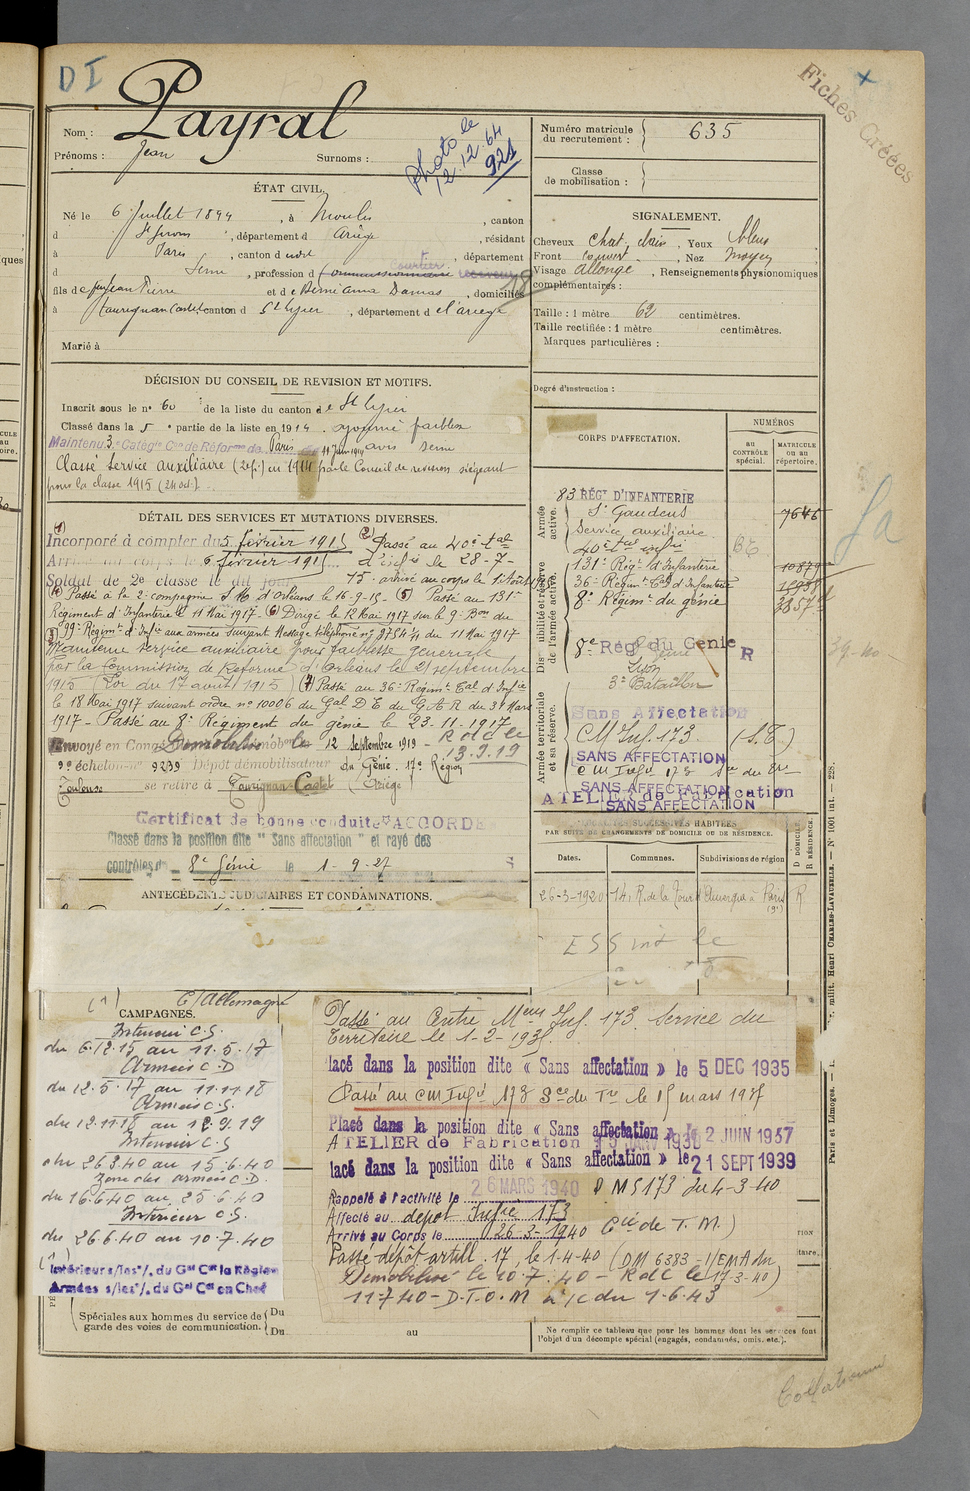 D I
Fiches Créées
Nom : Payral
Prénoms : Jean
Surnoms :
Photo le
12.12.64
921
Numéro matricule
du recrutement : 635
Classe
de mobilisation :
ÉTAT CIVIL.
Né le 6 Juillet 1894, à Moulis, canton
d St Girons, département d Ariège, résidant
à Paris, canton d, département
d Seine, profession d Courtier
fils de feu Jean Pierre et de, domiciliés
à Taurignan Castet canton d St Lizier, département d e l'ariège
Marié à
SIGNALEMENT.
Cheveux chat. clair, Yeux bleus
Front couvert, Nez moyen
Visage allongé, Renseignements physionomiques
complémentaires :
Taille : 1 mètre 62 centimètres.
Taille rectifiée : 1 mètre centimètres.
Marques particulières :
Degré d'instruction :
DÉCISION DU CONSEIL DE REVISION ET MOTIFS.
Inscrit sous le n° 60 de la liste du canton de St Lizier
Classé dans la 5e partie de la liste en 1914 ajourné faiblesse
Maintenu Paris avis Seine
Classé Service auxiliaire en 1914 par le Conseil de revision siégeant
pour la classe 1915
CORPS D'AFFECTATION.
NUMÉROS
au
CONTRÔLE
spécial.
MATRICULE
ou au
répertoire.
Armée
active.
83 RÉGt D'INFANTERIE
St Gaudens
Service auxiliaire
7646
131e Régt d'Infanterie
10879
36e Régimt Tal d'Infanterie
8e Régimt du génie
8e Régt du Génie
R
Lyon
3e Bataillon
Armée territoriale
et sa réserve.
Sans Affectation
CM Inf. 173
SANS AFFECTATION
SANS AFFECTATION
ATELIER de Fabrication
SANS AFFECTATION
DÉTAIL DES SERVICES ET MUTATIONS DIVERSES.
(1) Incorporé à compter du 5 février 1915 (2) Passé au 40e tal
Arrivé au corps le 6 février 1915 d'infie le 28-7-
Soldat de 2e classe le dit jour 15 - arrivé au corps le 1 Août 1915
(4) Passé à la 2e compagnie d'Orléans le 16-9-15 - (5) Passé au 131e
Régiment d'Infanterie le 11 Mai 1917 - (6) Dirigé le 12 Mai 1917 sur le 9e Bon du
99e Régimt d'Infie aux armées suivant Message téléphoné n° 9754/4 du 11 Mai 1917
(3) Maintenu service auxiliaire pour faiblesse générale
par la Commission de Réforme d'Orléans le 21 septembre
1915 (Loi du 17 août 1915) (7) Passé au 36e Régimt Tal d'Infie
le 18 Mai 1917 suivant ordre n° 10006 du Gal D E du G A R du 31 Mars
1917 - Passé au 8e Régiment du génie le 23-11-1917
Envoyé en Congé Démobilisé le 12 Septembre 1919 - R d C le
13.9.19
9e échelon n° 9239 Dépôt démobilisateur du Génie 17e Région
Toulouse se retire à Taurignan-Castet (Ariège)
Certificat de bonne conduite "ACCORDÉ"
Classé dans la position dite "Sans affectation" et rayé des
contrôles du 8e Génie le 1-9-27
LOCALITÉS SUCCESSIVES HABITÉES
PAR SUITE DE CHANGEMENTS DE DOMICILE OU DE RÉSIDENCE.
Dates.
Communes.
Subdivisions de région
D DOMICILE
R RÉSIDENCE.
26-3-1920 14, R. de la Tour d'Auvergne à Paris (9e) R
ANTÉCÉDENTS JUDICIAIRES ET CONDAMNATIONS.
(1) C/Allemagne
CAMPAGNES.
Intérieur C.S.
du 6.12.15 au 11.5.17
Armées C.D
du 12.5.17 au 11.11.18
Armées C.S.
du 12.11.18 au 12.9.19
Intérieur C.S
du 26.3.40 au 15.6.40
Zone des armées C.D.
du 16.6.40 au 25.6.40
Intérieur C.S.
du 26.6.40 au 10.7.40
(1) Intérieur s/les o/. du Gal Ct la Région
Armées s/les o/. du Gal Ct en Chef
Passé au Centre Meur Inf. 173 Service du
Territoire le 1-2-193
lacé dans la position dite « Sans affectation » le 5 DEC 1935
Passé au CM Infie 173 Sce du Tre le 15 mars 1937
Placé dans la position dite « Sans affectation » le 2 JUIN 1937
ATELIER de Fabrication
lacé dans la position dite « Sans affectation » le 21 SEPT 1939
Rappelé à l'activité le 26 MARS 1940 D M S 173 du 4-3-40
Affecté au dépôt Infie 173
Arrivé au Corps le 26-3-1940 Cie de T.M.)
Passé dépôt artill. 17, le 1-4-40 (DM 6383-1/EMA du
Démobilisé le 10.7.40 - R d C le 17-3-40)
11-7-40 - D.T.O.M à/c du 1-6-43
Spéciales aux hommes du service de
garde des voies de communication.
Du
Du
au
Ne remplir ce tableau que pour les hommes dont les services font
l'objet d'un décompte spécial (engagés, condamnés, omis, etc.).
milit. Henri CHARLES-LAVAUZELLE. — N° 1001 int. — 228.
Paris et Limoges.
Collationné